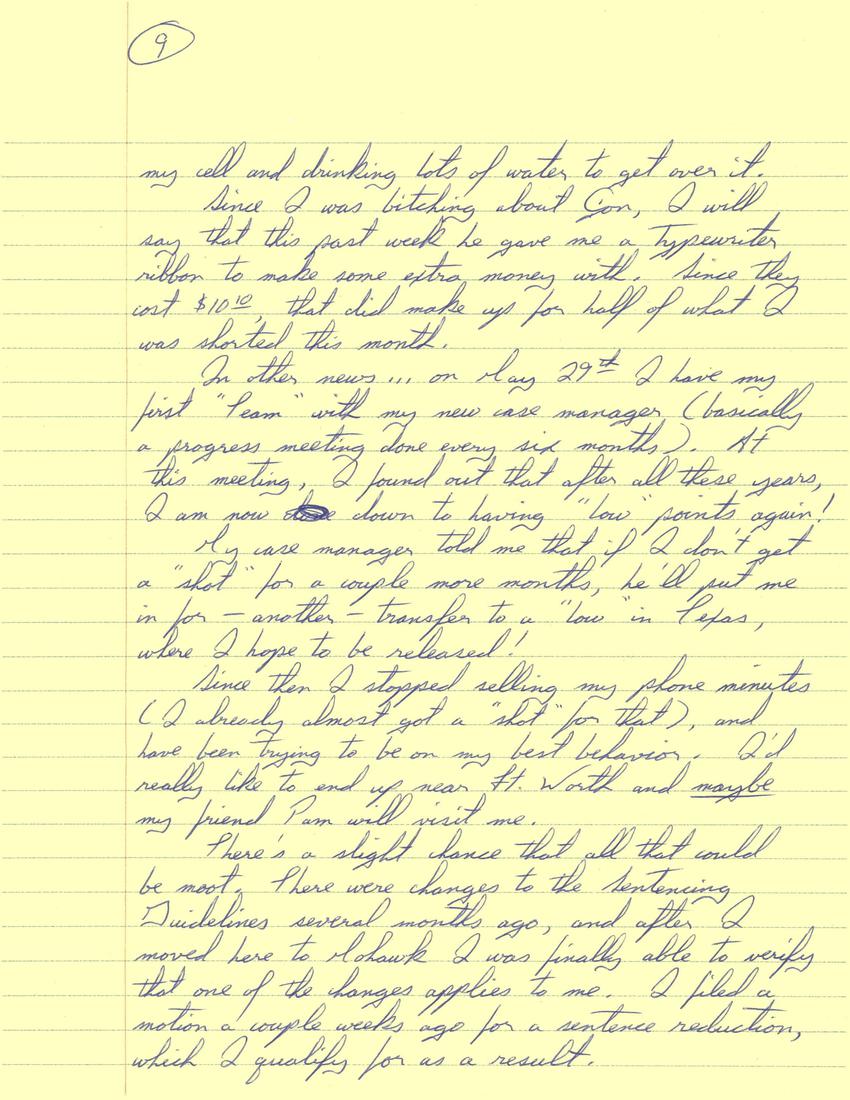 9
my cell and drinking lots of water to get over it.
Since I was bitching about Con, I will
say that this past week he gave me a Typewriter
ribbon to make some extra money with. Since they
cost $10.10, that did make up for half of what I
was shorted this month.
In other news... on May 29th I have my
first "Team" with my new case manager (basically
a progress meeting done every six months). At
this meeting, I found out that after all these years,
I am now down to having "low" points again!
My case manager told me that if I don't get
a "shot" for a couple more months, he'll put me
in for - another - transfer to a "low" in Texas,
where I hope to be released!
Since then I stopped selling my phone minutes
(I already almost got a "shot" for that), and
have been trying to be on my best behavior. I'd
really like to end up near Ft. Worth and maybe
my friend Pam will visit me.
There's a slight chance that all that could
be moot. There were changes to the Sentencing
Guidelines several months ago, and after I
moved here to Mohawk I was finally able to verify
that one of the changes applies to me. I filed a
motion a couple weeks ago for a sentence reduction,
which I qualify for as a result.